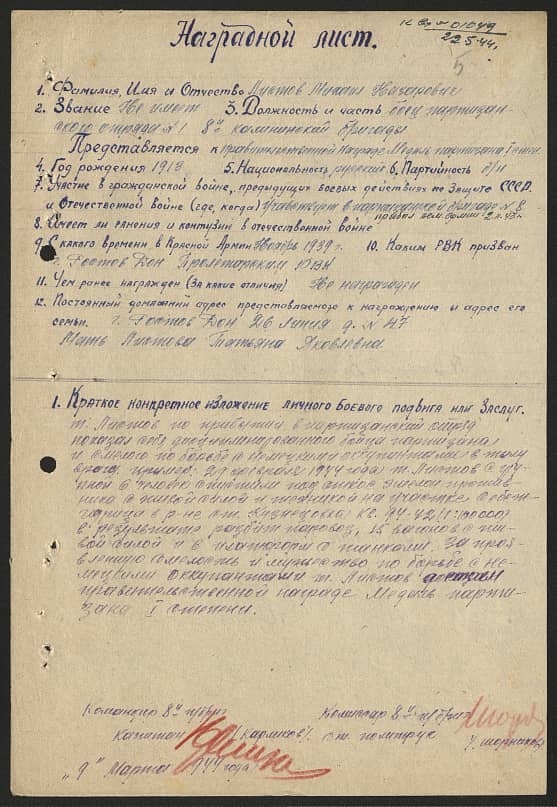 к вх № 01049
22.5.44.
5
Наградной лист.
1. Фамилия, Имя и Отчество Листов Михаил Назарович
2. Звание Не имеет 3. Должность и часть боец партизан-
ского отряда № 1 8й калининской бригады
Представляется к правительственной Награде Медаль партизана I степ.
4. Год рождения 1918 5. Национальность русский 6. Партийность б/п
7. Участие в гражданской войне, предыдущих боевых действиях по защите СССР
и Отечественной войне (где, когда) Участвует в партизанской бригаде № 8
8. Имеет ли ранения и контузии в отечественной войне
9. С какого времени в Красной Армии Ноябрь 1939 г. 10. Каким РВК призван
г. Ростов Дон Пролетарским РВК
11. Чем ранее награжден (За какие отличия) Не награжден
12. Постоянный домашний адрес представляемого к награждению и адрес его
семьи. г. Ростов Дон 26 линия д. № 47
Мать Листова Татьяна Яковлевна.
1. Краткое конкретное изложение личного боевого подвига или заслуг.
т. Листов по прибытии в партизанский отряд
показал себя дисциплинированного бойца партизана
и смелого по борьбе с немецкими оккупантами в тылу
врага. пример. 29 февраля 1944 года т. Листов с груп-
пой 6 человек участвуя под откос эшелон против-
ника с живой силой и техникой на участке Себеж-
в р-не ст. Кузнецовка кв. 94-42 (1:100000)
в результате разбит паровоз, 15 вагонов с жи-
вой силой и 2 платформ с танками. За проя-
вленную смелость и мужество по борьбе с не-
мецкими оккупантами т. Листов достоин
правительственной награде Медаль парти-
зана I степени.
Командир 8й п/бриг Комиссар 8й п/бриг
Капитан /Карликов/. ст. политрук
"9" Марта 1944 года